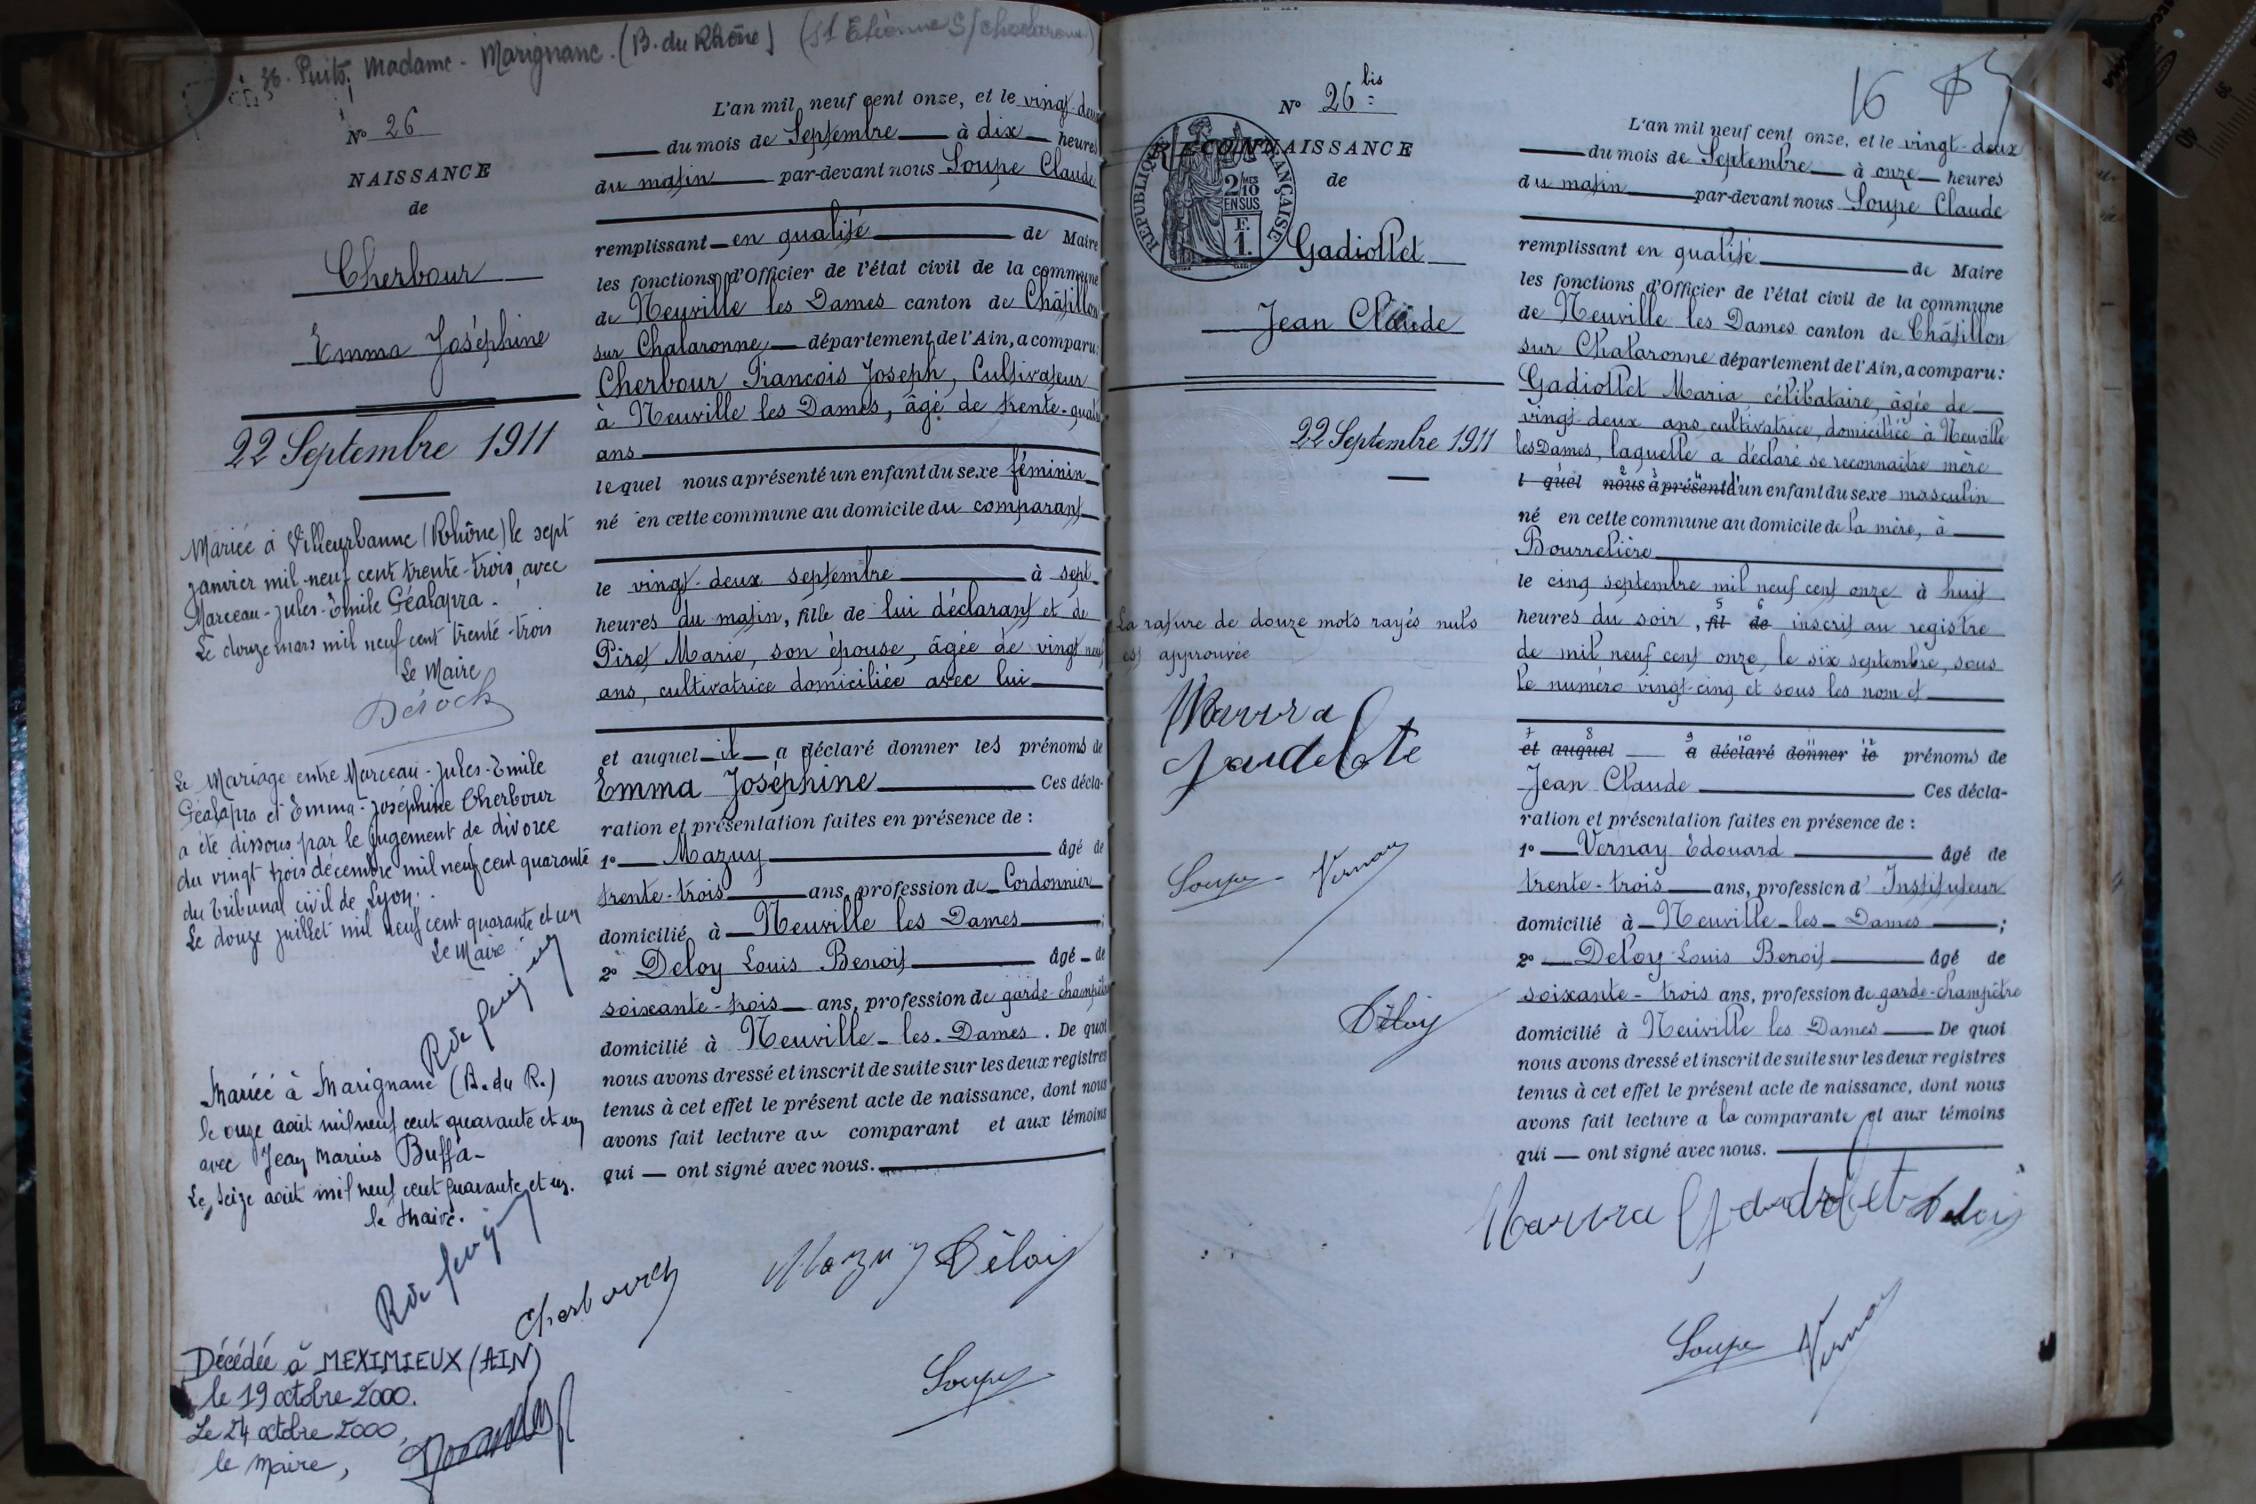 36. Puits Madame - Marignane. (B. du Rhône) (St Etienne S/ Chalaronne)
N° 26
NAISSANCE
de
Cherbour
Emma Joséphine
22 Septembre 1911
Mariée à Villeurbanne (Rhône) le sept
janvier mil-neuf cent trente-trois, avec
Marceau-Jules-Emile Géalapra.
Le douze mars mil neuf cent trente-trois
Le Maire
Le Mariage entre Marceau-Jules-Emile
Géalapra et Emma-Joséphine Cherbour
a été dissous par le jugement de divorce
du vingt trois décembre mil neuf cent quarante
du Tribunal civil de Lyon.
Le douze juillet mil neuf cent quarante et un
Le Maire
Mariée à Marignane (B. du R.)
le onze août mil neuf cent quarante et un
avec Jean Marius Buffa-
Le seize août mil neuf cent quarante et un.
le Maire.
Décédée à MEXIMIEUX (AIN)
le 19 octobre 2000.
Le 24 octobre 2000,
le Maire,
L'an mil neuf cent onze, et le vingt-deux
du mois de Septembre à dix heures
du matin par-devant nous Soupe Claude
remplissant en qualité de Maire
les fonctions d'Officier de l'état civil de la commune
de Neuville les Dames canton de Châtillon
sur Chalaronne, département de l'Ain, a comparu:
Cherbour François Joseph, Cultivateur
à Neuville les Dames, âgé de trente-quatre
ans
lequel nous a présenté un enfant du sexe féminin
né en cette commune au domicile du comparant
le vingt-deux septembre à sept
heures du matin, fille de lui déclarant et de
Piret Marie, son épouse, âgée de vingt neuf
ans, cultivatrice domiciliée avec lui
et auquel il a déclaré donner les prénoms de
Emma Joséphine Ces décla-
ration et présentation faites en présence de :
1° Mazuy âgé de
trente-trois ans, profession de Cordonnier
domicilié à Neuville les Dames ;
2° Deloy Louis Benoit âgé de
soixante-trois ans, profession de garde-champêtre
domicilié à Neuville-les-Dames. De quoi
nous avons dressé et inscrit de suite sur les deux registres
tenus à cet effet le présent acte de naissance, dont nous
avons fait lecture au comparant et aux témoins
qui — ont signé avec nous.
Cherbour Mazuy Déloy
Soupe
N° 26 bis
RECONNAISSANCE
RÉPUBLIQUE FRANÇAISE
2/10 MES
EN SUS
F.
1.
de
Gadiollet
Jean Claude
22 Septembre 1911
La rature de douze mots rayés nuls
est approuvée
Soupe Vernay
Déloy
16
L'an mil neuf cent onze, et le vingt-deux
du mois de Septembre à onze heures
du matin par-devant nous Soupe Claude
remplissant en qualité de Maire
les fonctions d'Officier de l'état civil de la commune
de Neuville les Dames canton de Châtillon
sur Chalaronne département de l'Ain, a comparu:
Gadiollet Maria célibataire, âgée de
vingt-deux ans cultivatrice, domiciliée à Neuville
les Dames, laquelle a déclaré se reconnaitre mère
l quel nous a présenté d'un enfant du sexe masculin
né en cette commune au domicile de la mère, à
Bourrelière
le cinq septembre mil neuf cent onze à huit
heures du soir, fil de inscrit au registre
de mil neuf cent onze, le six septembre, sous
le numéro vingt-cinq et sous les nom et
et auquel a déclaré donner le prénoms de
Jean Claude Ces décla-
ration et présentation faites en présence de :
1° Vernay Edouard âgé de
trente-trois ans, profession d' Instituteur
domicilié à Neuville-les-Dames ;
2° Deloy Louis Benoit âgé de
soixante-trois ans, profession de garde-champêtre
domicilié à Neuville les Dames De quoi
nous avons dressé et inscrit de suite sur les deux registres
tenus à cet effet le présent acte de naissance, dont nous
avons fait lecture a la comparante et aux témoins
qui — ont signé avec nous.
Déloy
Soupe Vernay